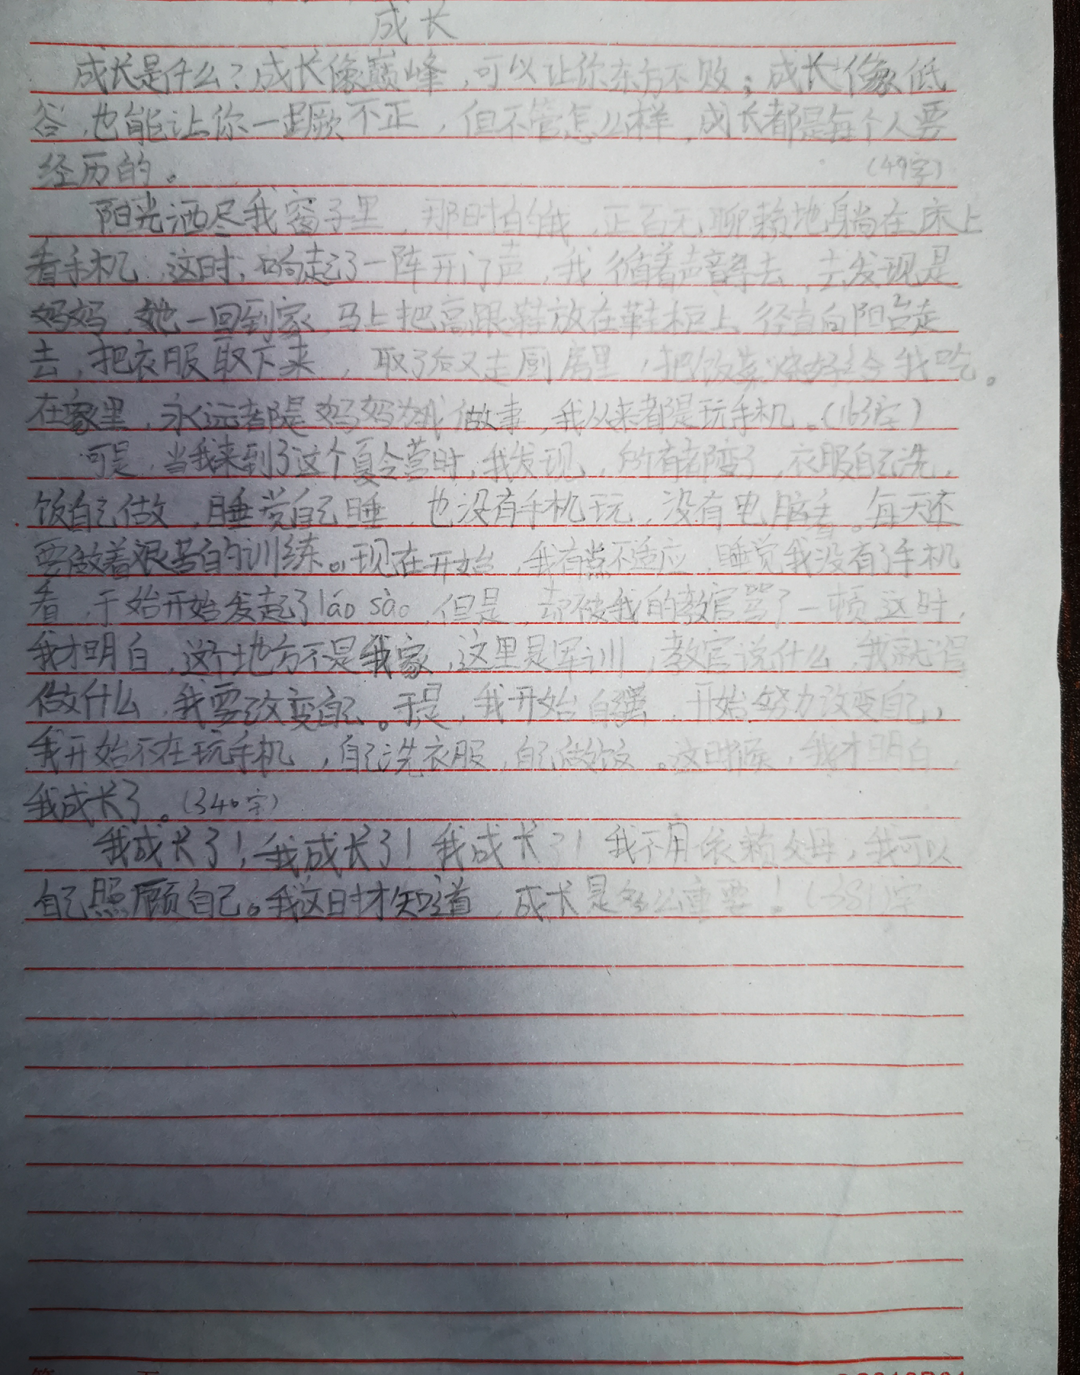 成长
成长是什么？成长像巅峰，可以让你东方不败；成长像低
谷，也能让你一蹶不正，但不管怎么样，成长都是每个人要
经历的。(49字)
阳光洒尽我窗子里，那时的我，正百无聊赖地躺在床上
看手机，这时，响起了一阵开门声，我循着声音寻去，去发现是
妈妈，她一回到家，马上把高跟鞋放在鞋柜上，径直向阳台走
去，把衣服取下来，取了后又走厨房里，把饭菜烧好给我吃。
在家里，永远都是妈妈为我做事，我从来都是玩手机。(163字)
可是，当我来到了这个夏令营时，我发现，所有都变了，衣服自己洗，
饭自己做，睡觉自己睡，也没有手机玩，没有电脑看。每天还
要做着艰苦的训练。现在开始，我有点不适应，睡觉我没有了手机
看，于始开始发起了láo sāo，但是，却被我的教官骂了一顿，这时，
我才明白，这个地方不是我家，这里是军训，教官说什么，我就得
做什么，我要改变自己。于是，我开始自强，开始努力改变自己，
我开始不在玩手机，自己洗衣服，自己做饭。这时候，我才明白，
我成长了。(340字)
我成长了！我成长了！我成长了！我不用依赖父母，我可以
自己照顾自己。我这时才知道，成长是多么重要！(381字